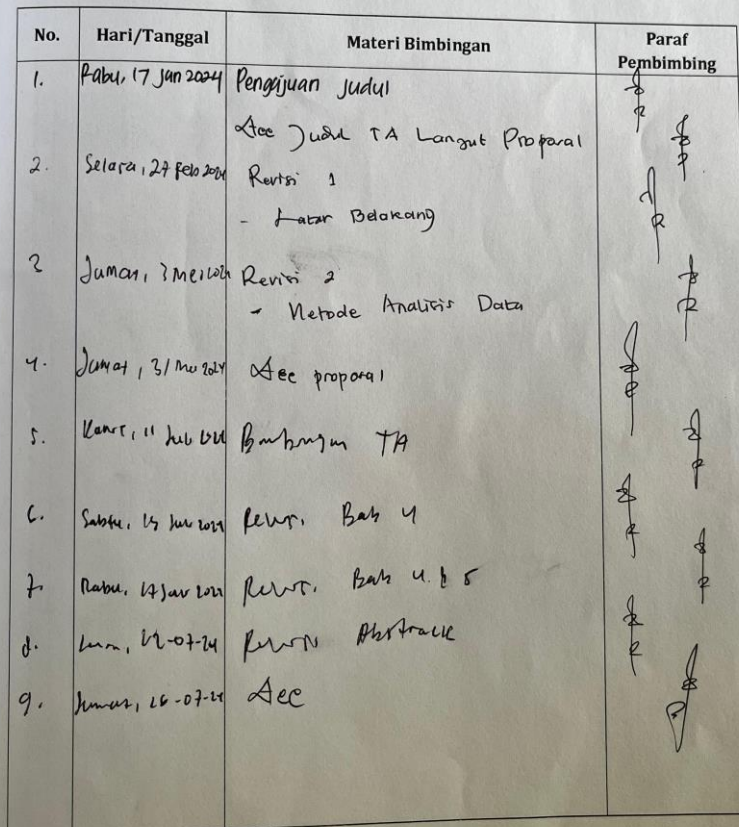 No. Hari/Tanggal Materi Bimbingan Paraf
Pembimbing
1. Rabu, 17 Jan 2024 Pengajuan Judul
Acc Judul TA Lanjut Proposal
2. Selasa, 27 Feb 2024 Revisi 1
- Latar Belakang
3 Jumat, 3 Mei 2024 Revisi 2
- Metode Analisis Data
4. Jumat, 31 Mei 2024 Acc proposal
5. Kamis, 11 Juli Bimbingan TA
6. Sabtu, Revisi Bab 4
7. Rabu, 17 Revisi Bab 4 & 5
8. Senin, 22-07-24 Revisi Abstrack
9. Jumat, 26-07-24 Acc